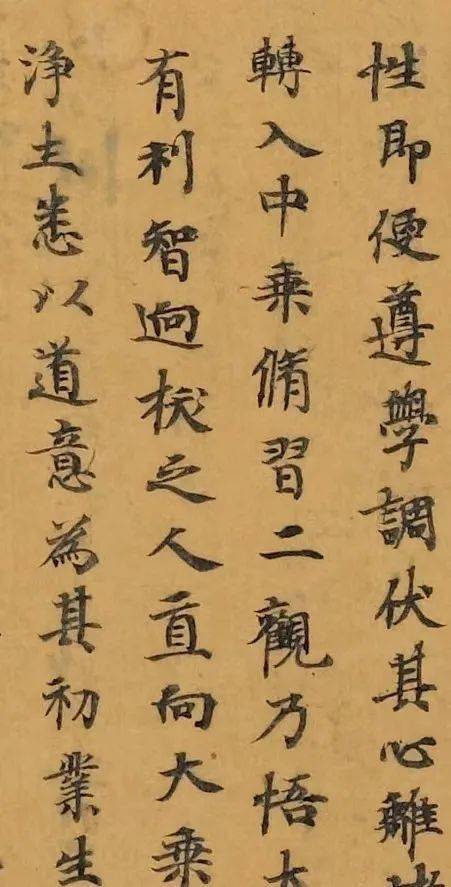 性即便遵學調伏其心離
轉入中乗脩習二觀乃悟
有利智逈拔之人直向大乗
浄土悉以道意為其初業生